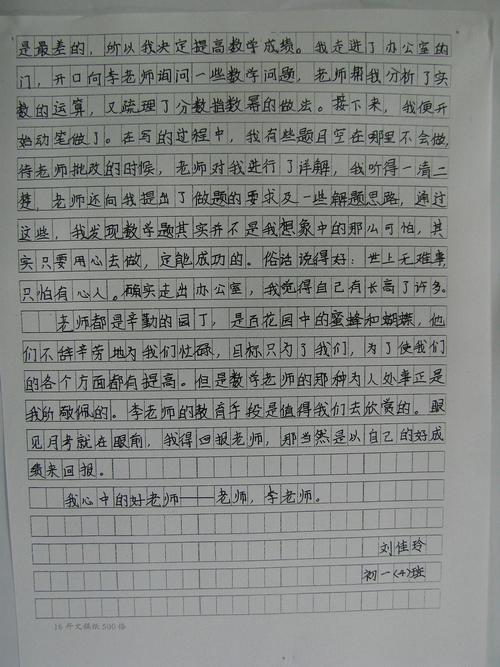 是最差的，所以我决定提高数学成绩。我走进了办公室的
门，开口向李老师询问一些数学问题，老师帮我分析了实
数的运算，又疏理了分数指数幂的做法。接下来，我便开
始动笔做了。在写的过程中，我有些题目空在哪里不会做，
待老师批改的时候，老师对我进行了详解，我听得一清二
楚，老师还向我提出了做题的要求及一些解题思路，通过
这些，我发现数学题其实并不是我想象中的那么可怕，其
实只要用心去做，定能成功的。俗话说得好：世上无难事，
只怕有心人。确实走出办公室，我觉得自己有长高了许多。
老师都是辛勤的园丁，是百花园中的蜜蜂和蝴蝶，他
们不辞辛劳地为我们忙碌，目标只为了我们，为了使我们
的各个方面都有提高。但是数学老师的那种为人处事正是
我所敬佩的。李老师的教育手段是值得我们去欣赏的。眼
见月考就在眼前，我得回报老师，那当然是以自己的好成
绩来回报。
我心中的好老师——老师，李老师。
刘佳玲
初一〈4〉班
16开文稿纸500格